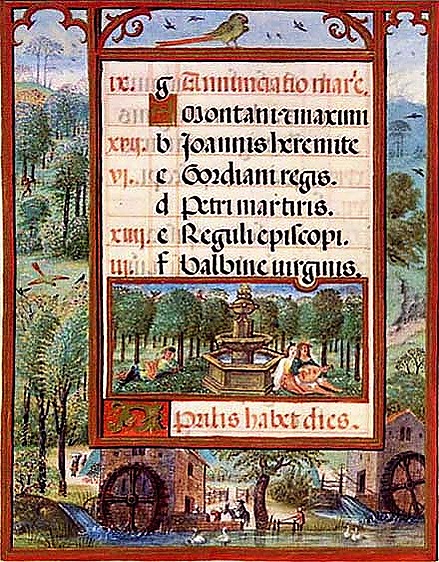 ix. g Anunciatio marie.
A Montani ⁊ maximi
xvii. b Joannis heremite
vi. c Gordiani regis.
d Petri martiris.
xiiii. e Reguli episcopi.
iii. f balbine uirginis.
Aprilis habet dies.